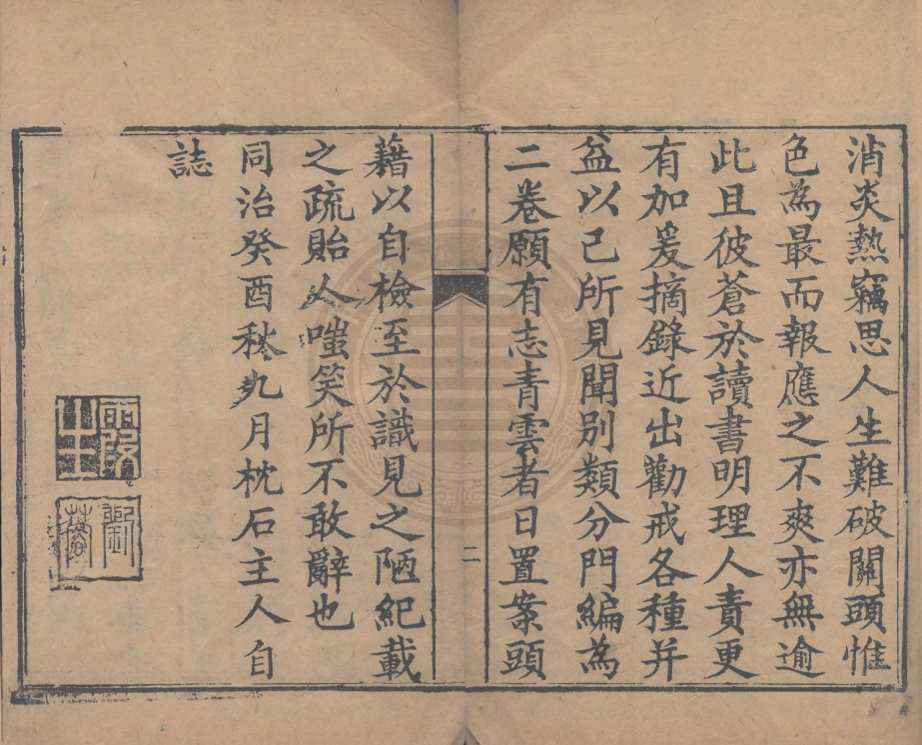 消炎熱竊思人生難破關頭惟
色為最而報應之不爽亦無逾
此且彼蒼於讀書明理人責更
有加爰摘錄近出勸戒各種并
益以己所見聞別類分門編為
二卷願有志青雲者日置案頭
二
藉以自檢至於識見之陋紀載
之疏貽人嗤笑所不敢辭也
同治癸酉秋九月枕石主人自
誌